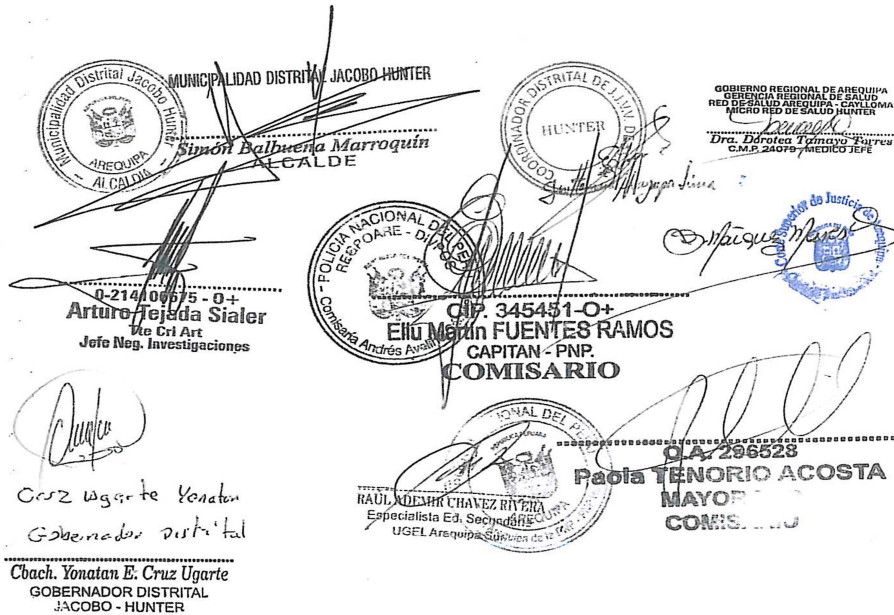 Municipalidad Distrital Jacobo Hunter
AREQUIPA
ALCALDIA
MUNICIPALIDAD DISTRITAL JACOBO HUNTER
Simón Balbuena Marroquín
ALCALDE
COORDINADOR DISTRITAL DE JJ.VV. DE
HUNTER
GOBIERNO REGIONAL DE AREQUIPA
GERENCIA REGIONAL DE SALUD
RED DE SALUD AREQUIPA - CAYLLOMA
MICRO RED DE SALUD HUNTER
Dra. Dorotea Tamayo Torres
C.M.P. 24079 MEDICO JEFE
Corte Superior de Justicia de
Arturo Tejada Sialer
Tte Crl Art
Jefe Neg. Investigaciones
POLICIA NACIONAL DEL
Comisaría Andrés
CIP. 345451-O+
FUENTES RAMOS
CAPITAN - PNP.
COMISARIO
Cruz Ugarte Yonatan
Gobernador Distrital
Cbach. Yonatan E. Cruz Ugarte
GOBERNADOR DISTRITAL
JACOBO - HUNTER
RAÚL ADEMIR CHAVEZ RIVERA
Especialista Ed. Secundaria
UGEL Arequipa
AREQUIPA
O.A. 296528
Paola TENORIO ACOSTA
MAYOR